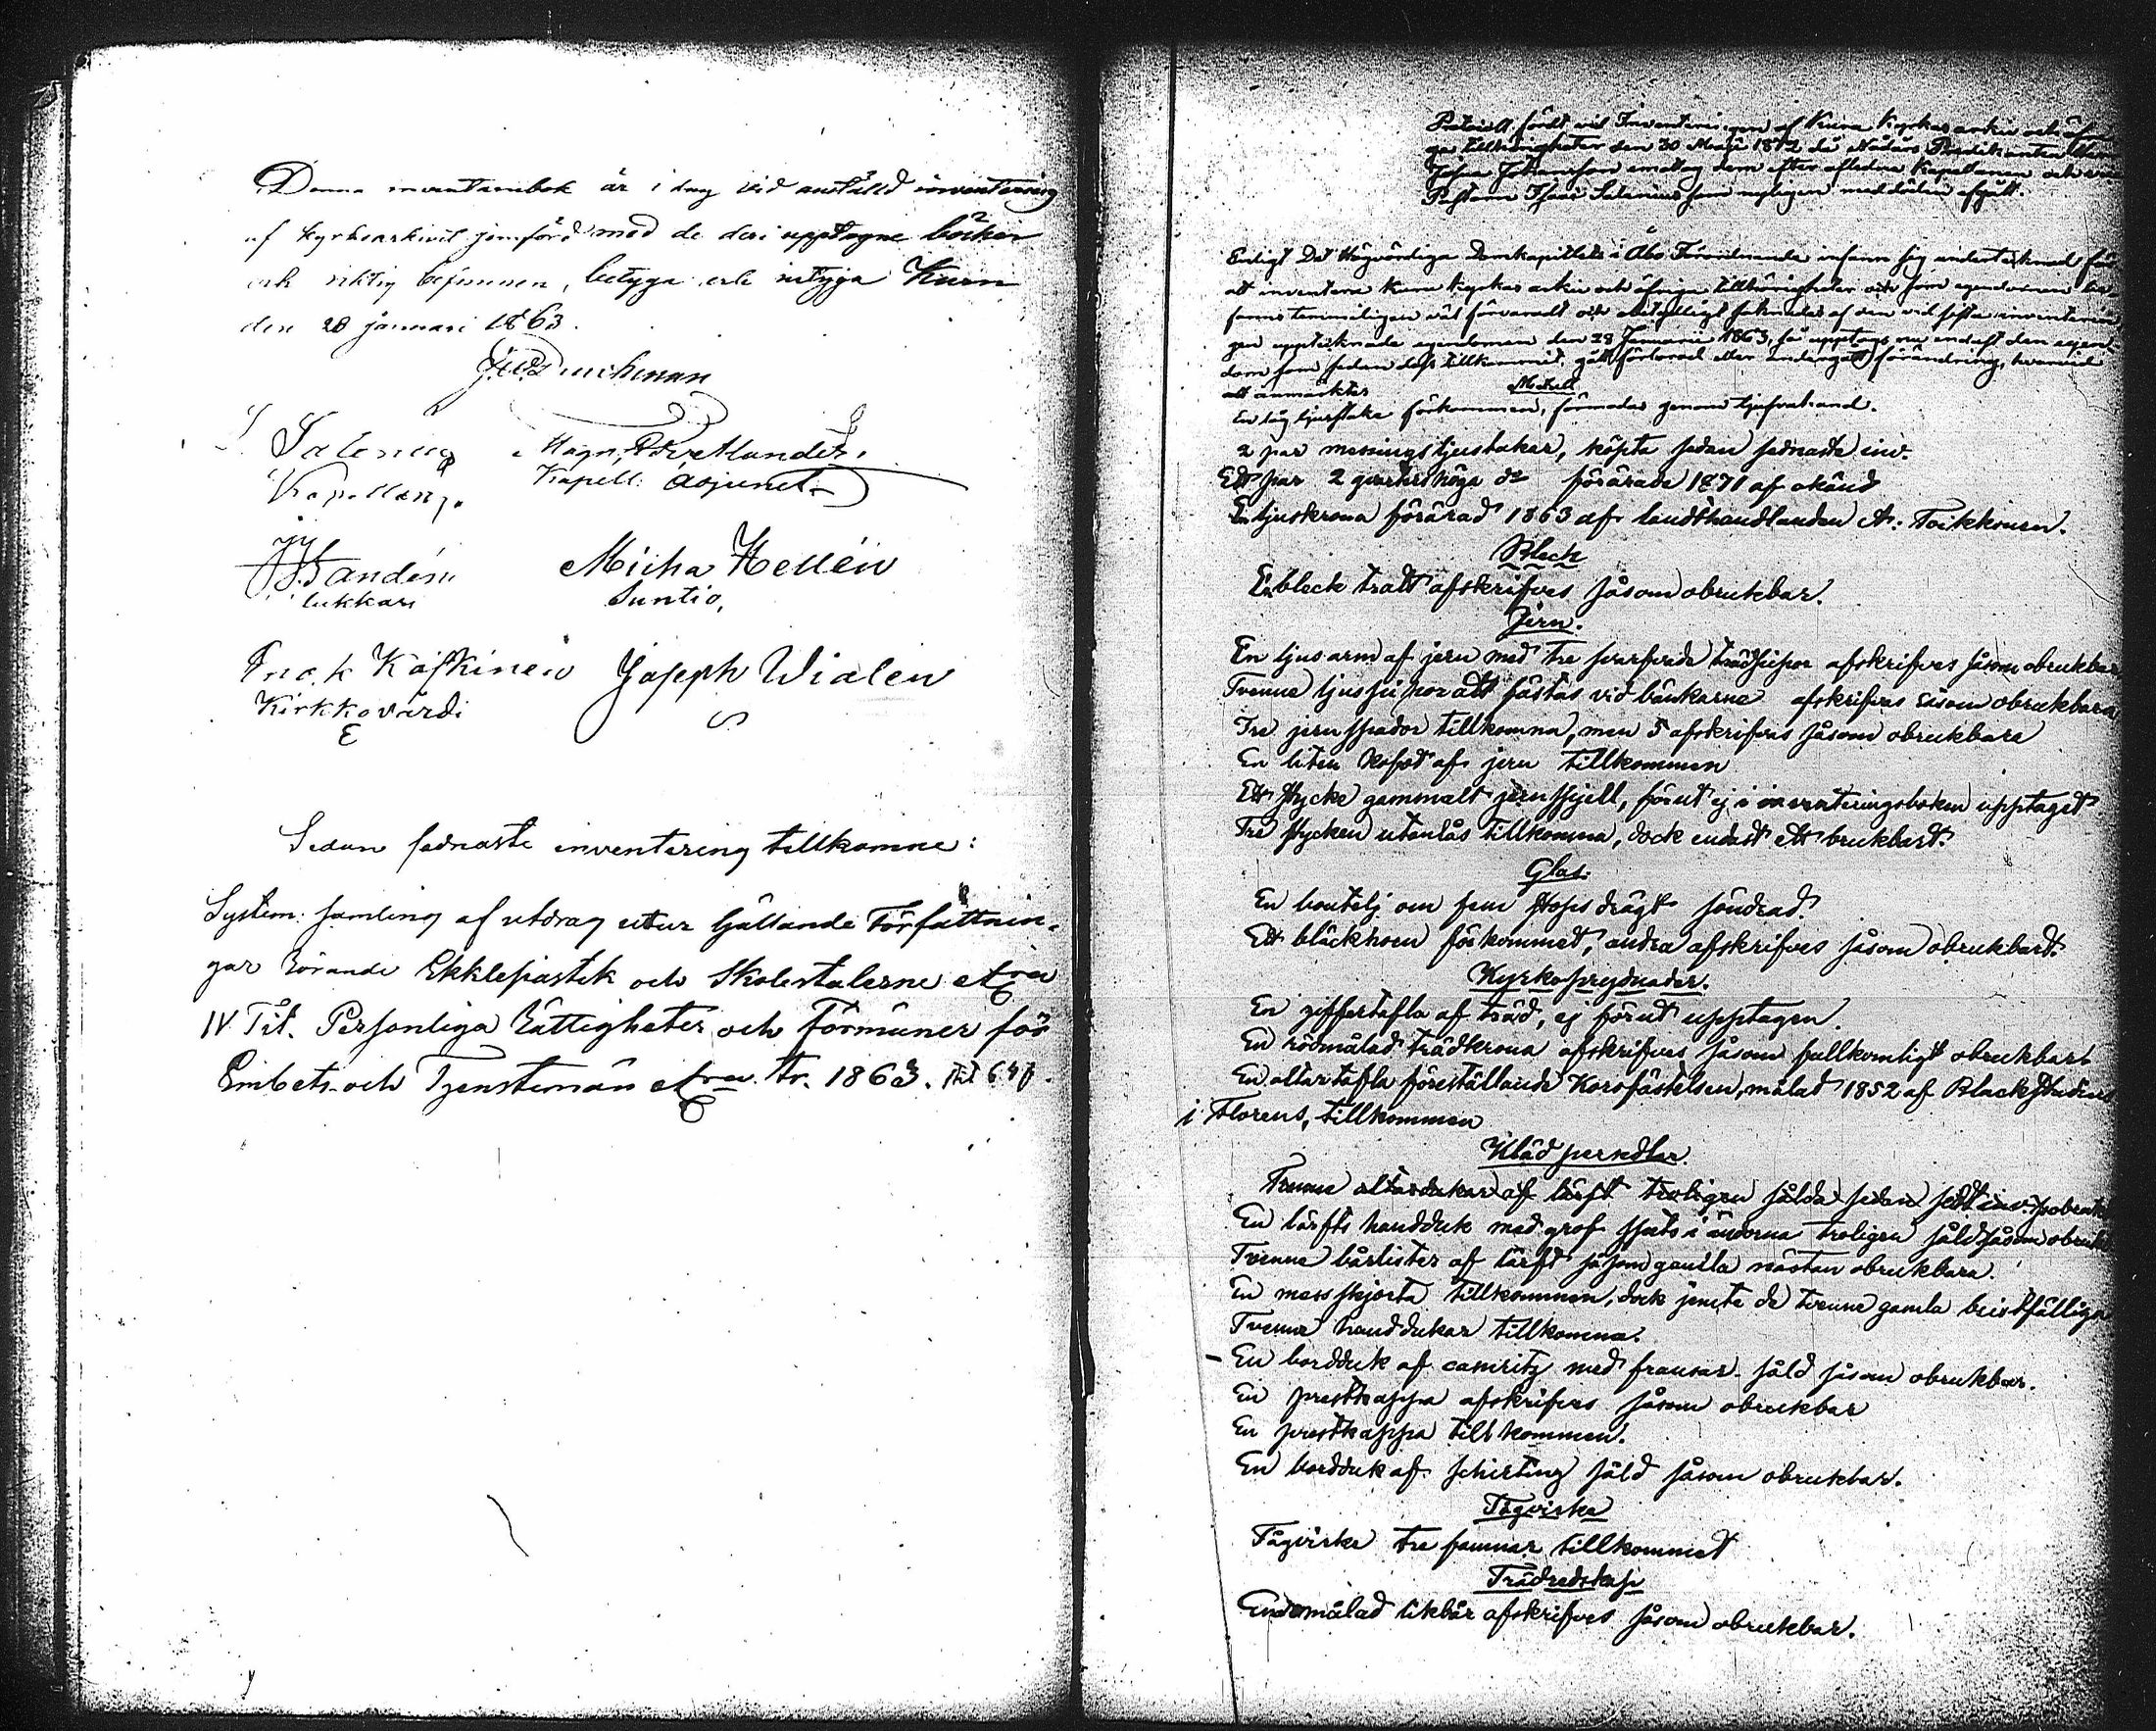 Denna inventariibok är i dag vid anställd inventering
af kyrkoarkivet jemförd med de deri upptagne böcker
och riktig befunnen, betyga och intyga Kuru
den 28 januari 1863.
Salenius Magn.
Kapellan. Kapell. Adjunct.
Sandén Micha Hellén
lukkari Suntio,
Enok Käskinen Joseph Wialen
Kirkkovärdi
Sedan sednaste inventering tillkomne:
System. samling af utdrag utur gällande Författnin-
gar rörande Ekklesiastik och Skolestaterne etc
IV Tit. Personliga Rättigheter och Förmåner för
Embets- och Tjenstemän etc tr. 1863.
Protocoll, fördt vid Inventeringen af Kuru kyrkas arkiv och öfri-
ga tillhörigheter den 30 Maji 1872 då Nådårs Predikanten
Johan Johansson emottog dem efter aflidne Kapellanen och
Pastorn Salenius som nyligen med döden afgått.
Enligt Det Högvördiga Domkapitlets i Åbo Förordnande infann sig undertecknad för
att inventera Kuru kyrkas arkiv och öfriga tillhörigheter och som egendomen be-
fanns temmeligen väl förvarad och saknades af den vid sista inventerin-
gen upptecknade egendomen den 28 Januarii 1863, så upptogs nu endast den egen-
dom som sedan dess tillkommit, gått förlorad eller undergått förändring, hvarvid
att anmärktes Metall
En låg ljusstake förkommen, förmodas genom tjufvahand.
2 par messings ljusstakar, köpta sedan sednaste inv.
Ett par 2 qvarters höga do förärade 1871 af okänd
En ljuskrona förärad 1863 af landthandlanden A: Toikkonen.
Bleck
En bleck tratt afskrifves såsom obrukbar.
Jern.
En ljusarm af jern med tre trädpipor afskrifves såsom obrukbar
Tvenne ljuspipor att fästas vid bänkarne afskrifves såsom obrukbara
Tre jernspador tillkomna, men 5 afskrifves såsom obrukbara
En liten kofot af jern tillkommen
Ett stycke gammalt jernspjell, förut ej i inventeringsboken upptaget
Tre stycken utanlås tillkomna, dock endast ett brukbart.
Glas.
En boutelj om fem stops drägt söndrad.
Ett bläckhorn förkommet, andra afskrifves såsom obrukbart.
Kyrkoprydnader.
En ziffertafla af träd, ej förut upptagen.
En rödmålad trädkrona afskrifves såsom fullkomligt obrukbar
En altartafla föreställande Korsfästelsen, målad 1852 af Blackstadius
i Florens, tillkommen
Klädpersedlar.
Tvenne altardukar af lärft troligen sålda sedan sedst inv.
En lärfts handduk med grof spets i ändorna troligen såld såsom obrukb
Tvenne bårlister af lärft såsom gamla nästan obrukbara.
En messskjorta tillkommen, dock jemte de tvenne gamla bristfälliga
Tvenne handdukar tillkomna.
- En bordduk af casiritz med fransar såld såsom obrukbar.
En prestkappa afskrifves såsom obrukbar
En prestkappa tillkommen.
En bordduk af schirting såld såsom obrukbar.
Tågvirke
Tågvirke tre famnar tillkommet
Trädredskap
En omålad likbår afskrifves såsom obrukbar.